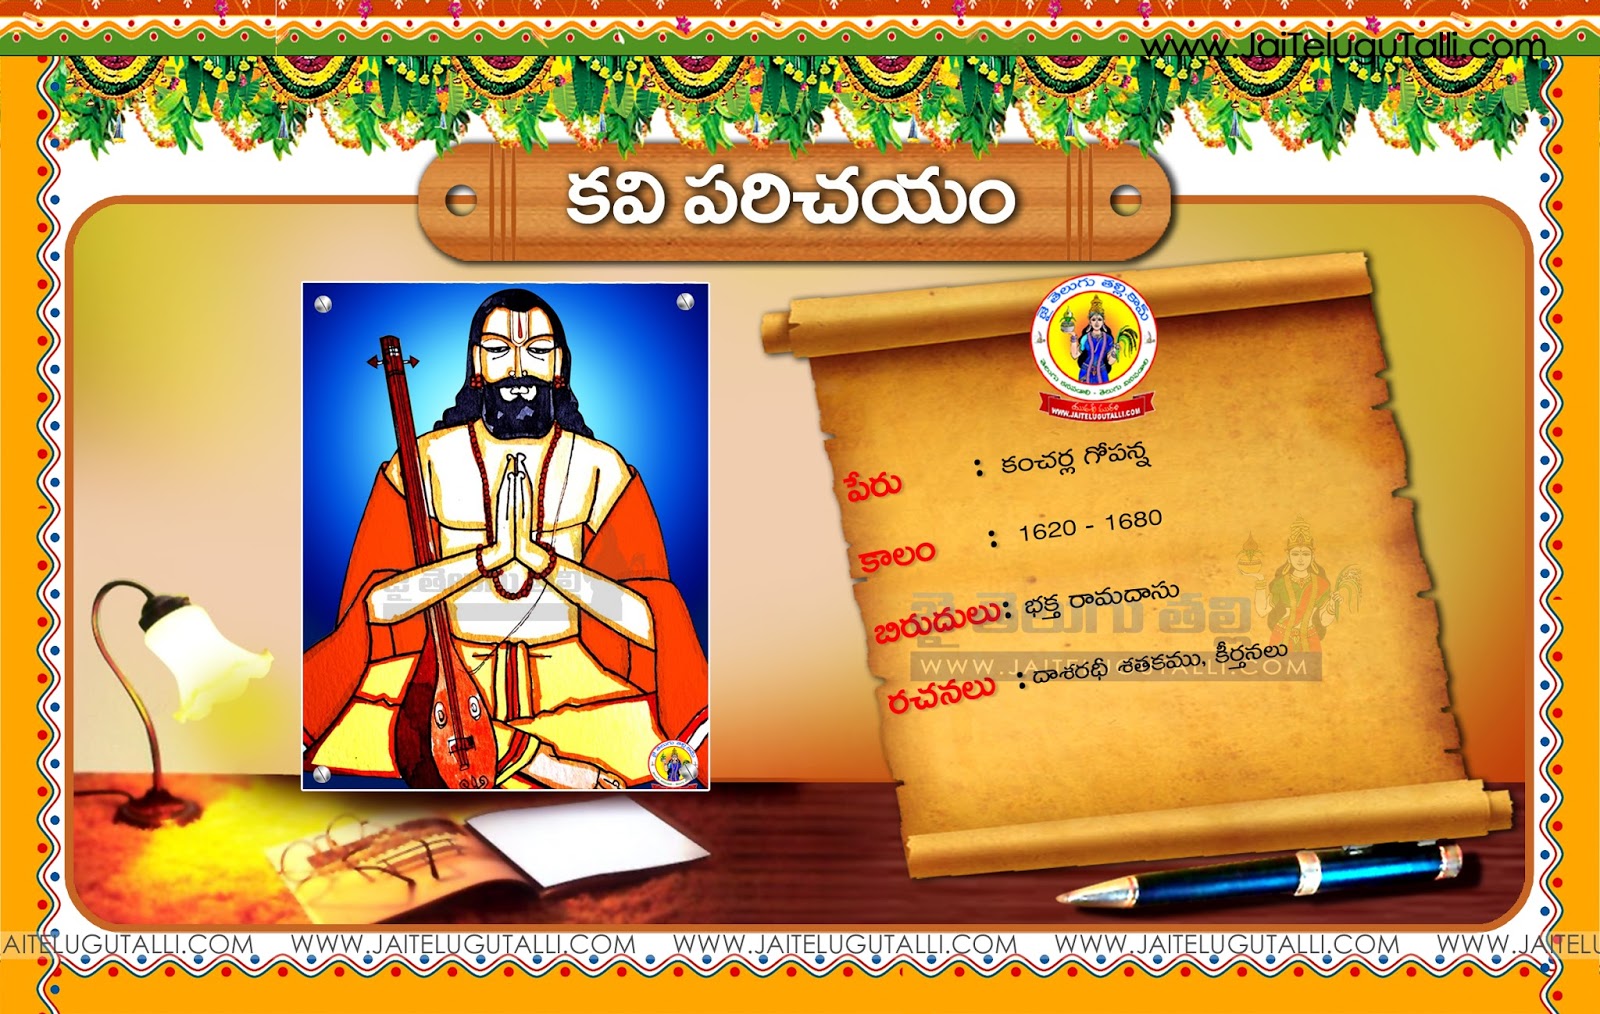 www.JaiTeluguTalli.com
కవి పరిచయం
జై తెలుగు తల్లి.కామ్
తెలుగు కనపడాలి - తెలుగు వినపడాలి
WWW.JAITELUGUTALLI.COM
పేరు : కంచర్ల గోపన్న
కాలం : 1620 - 1680
బిరుదులు : భక్త రామదాసు
రచనలు : దాశరధీ శతకము, కీర్తనలు
జై తెలుగు తల్లి
WWW.JAITELUGUTALLI.COM
జై తెలుగు తల్లి
AITELUGUTALLI.COM WWW.JAITELUGUTALLI.COM WWW.JAITELUGUTALLI.COM WWW.JAITELUGUTALLI.COM WWW.JAITELU